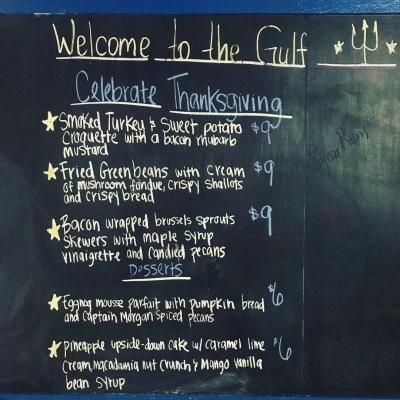 Welcome to the Gulf
Celebrate Thanksgiving
Smoked Turkey & Sweet potato $9
Croquette with a bacon rhubarb
mustard
Fried Greenbeans with cream $9
of mushroom fondue, crispy shallots
and crispy bread
Bacon wrapped brussels sprouts $9
skewers with maple syrup
vinaigrette and candied pecans
Desserts
Eggnog mousse parfait with pumpkin bread $6
and Captain Morgan Spiced pecans
Pineapple upside-down cake w/ caramel lime $6
Cream, Macadamia nut Crunch & Mango Vanilla
bean syrup